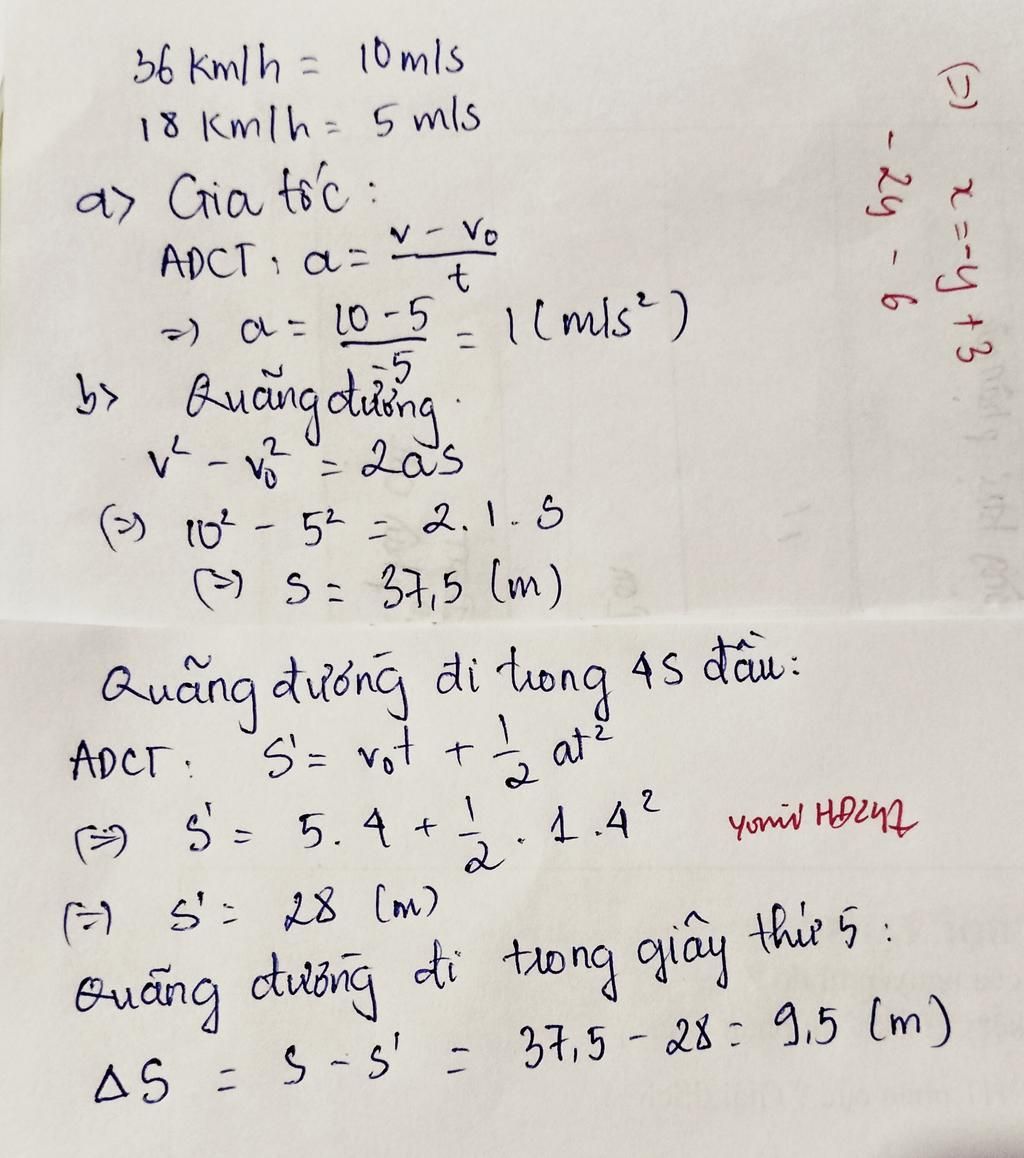 36 Km/h = 10 m/s
18 Km/h = 5 m/s
a> Gia tốc :
ADCT : a = (v - v₀)/t
=> a = (10 - 5)/5 = 1 (m/s²)
b> Quãng đường.
v² - v₀² = 2as
(=) 10² - 5² = 2.1.S
(=) S = 37,5 (m)
Quãng đường đi trong 4S đầu:
ADCT : S' = v₀t + 1/2 at²
(=) S' = 5.4 + 1/2 . 1.4²
(=) S' = 28 (m)
Quãng đường đi trong giây thứ 5 :
ΔS = S - S' = 37,5 - 28 = 9,5 (m)
(=) x = -y + 3
- 2y - 6